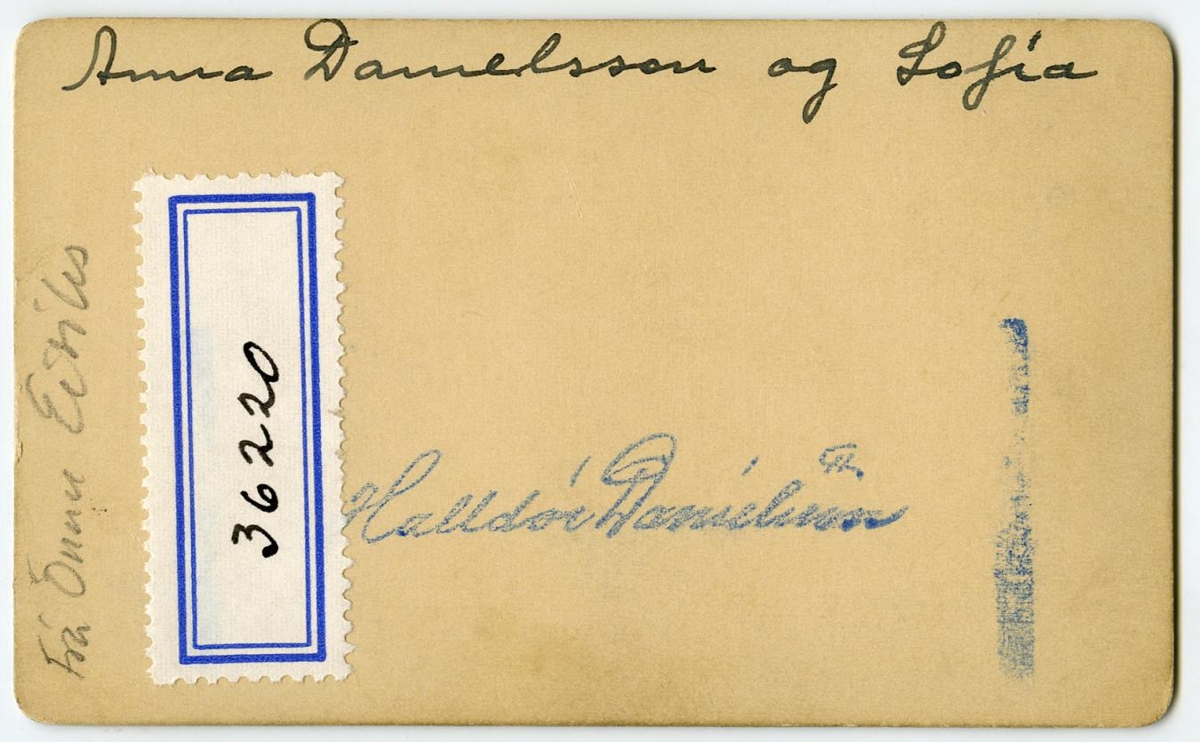 Anna Danielsson og Sofía
Frá Önnu Eiríks
36220
Halldór Daníelsson